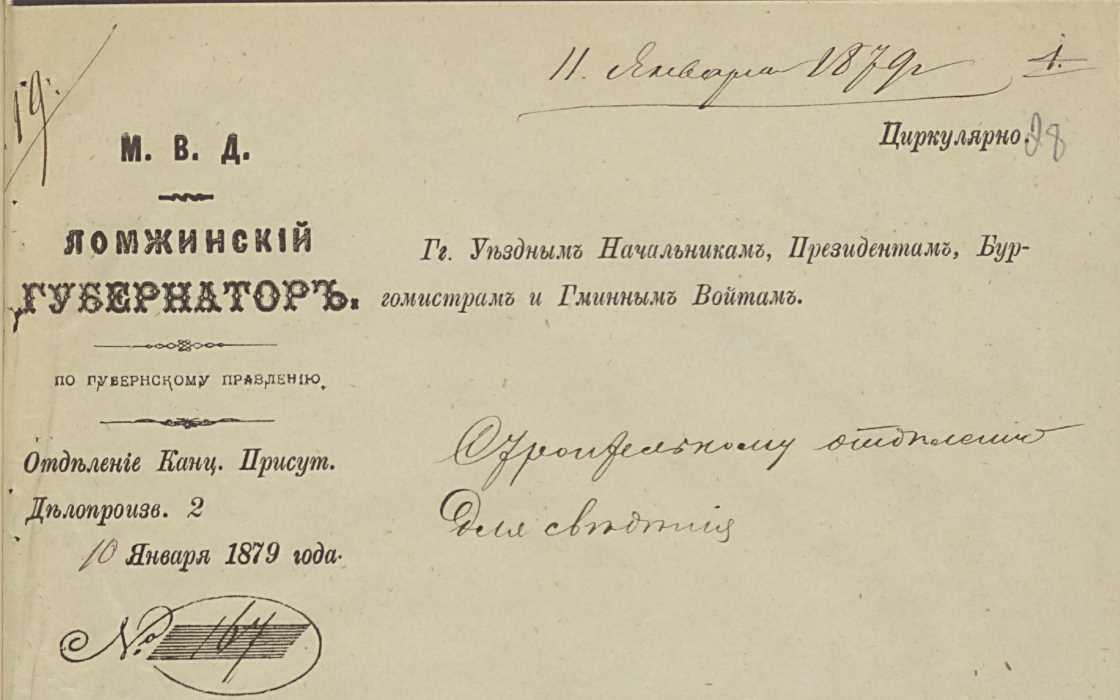 11. Января 1879 г
1.
19.
Циркулярно.
28
М. В. Д.
ЛОМЖИНСКІЙ
ГУБЕРНАТОРЪ.
ПО ГУБЕРНСКОМУ ПРАВЛЕНІЮ.
Отдѣленіе Канц. Присут.
Дѣлопроизв. 2
10 Января 1879 года.
№ 167
Гг. Уѣзднымъ Начальникамъ, Президентамъ, Бур-
гомистрамъ и Гминнымъ Войтамъ.
Строительному отдѣленію
для свѣдѣнія